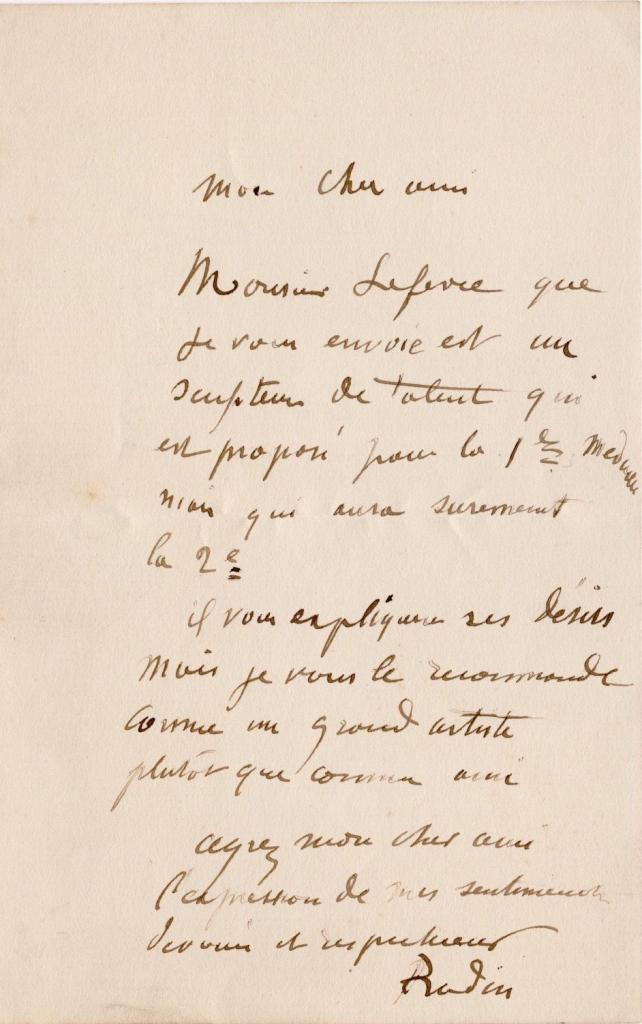 mon cher ami
Monsieur Lefevre que
je vous envoie est un
sculpteur de talent qui
est proposé pour la 1ère medaille
mais qui aura surement
la 2e
il vous expliquera ses désirs
mais je vous le recommande
comme un grand artiste
plutôt que comme ami
agrez mon cher ami
l'expression de mes sentiments
devoués et respectueux
Rodin